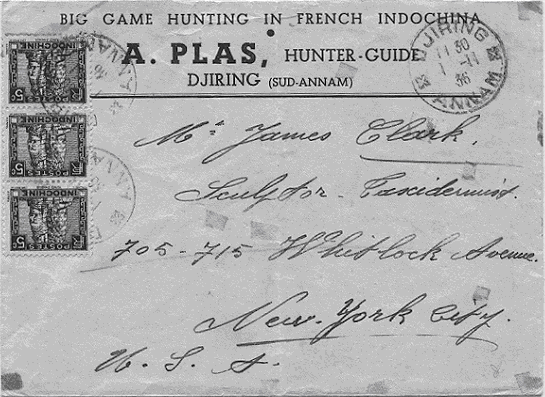 BIG GAME HUNTING IN FRENCH INDOCHINA
A. PLAS, HUNTER-GUIDE
DJIRING (SUD-ANNAM)
DJIRING
11 30
1 -11
36
ANNAM
INDOCHINE
POSTES
5
INDOCHINE
POSTES
5
INDOCHINE
POSTES
5
Mr James Clark.
Sculptor - Taxidermist.
705-715 Whitlock Avenue.
New-York City.
U. S. A.